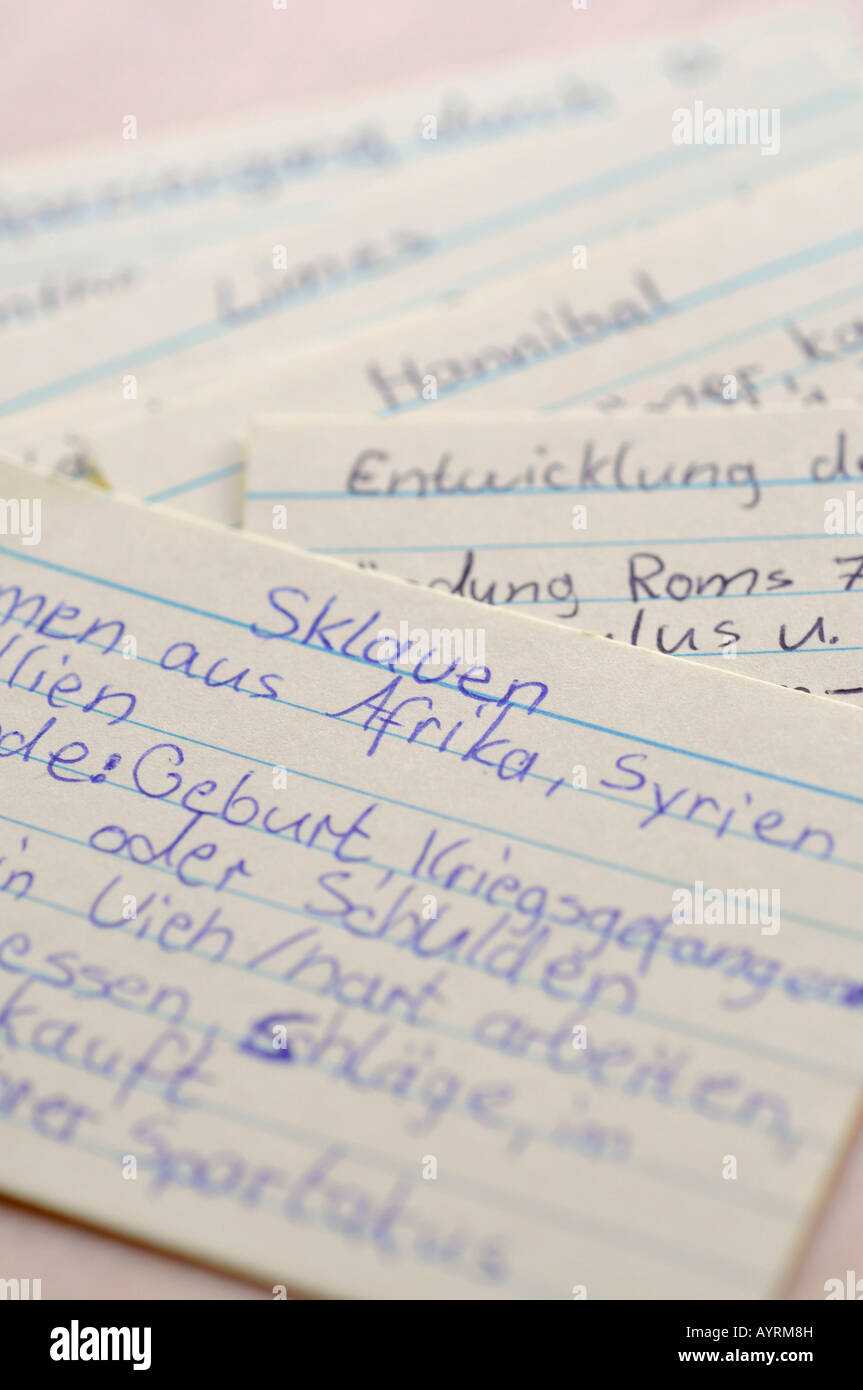 durch
Limes
Hannibal
Entwicklung de
ndung Roms 7
lus u.
Sklaven
men aus Afrika, Syrien
llien
de: Geburt, Kriegsgefangen
oder Schulden
in Vieh/hart arbeiten,
essen, Schläge, im
kauft
rer Spartakus
alamy
Image ID: AYRM8H
www.alamy.com